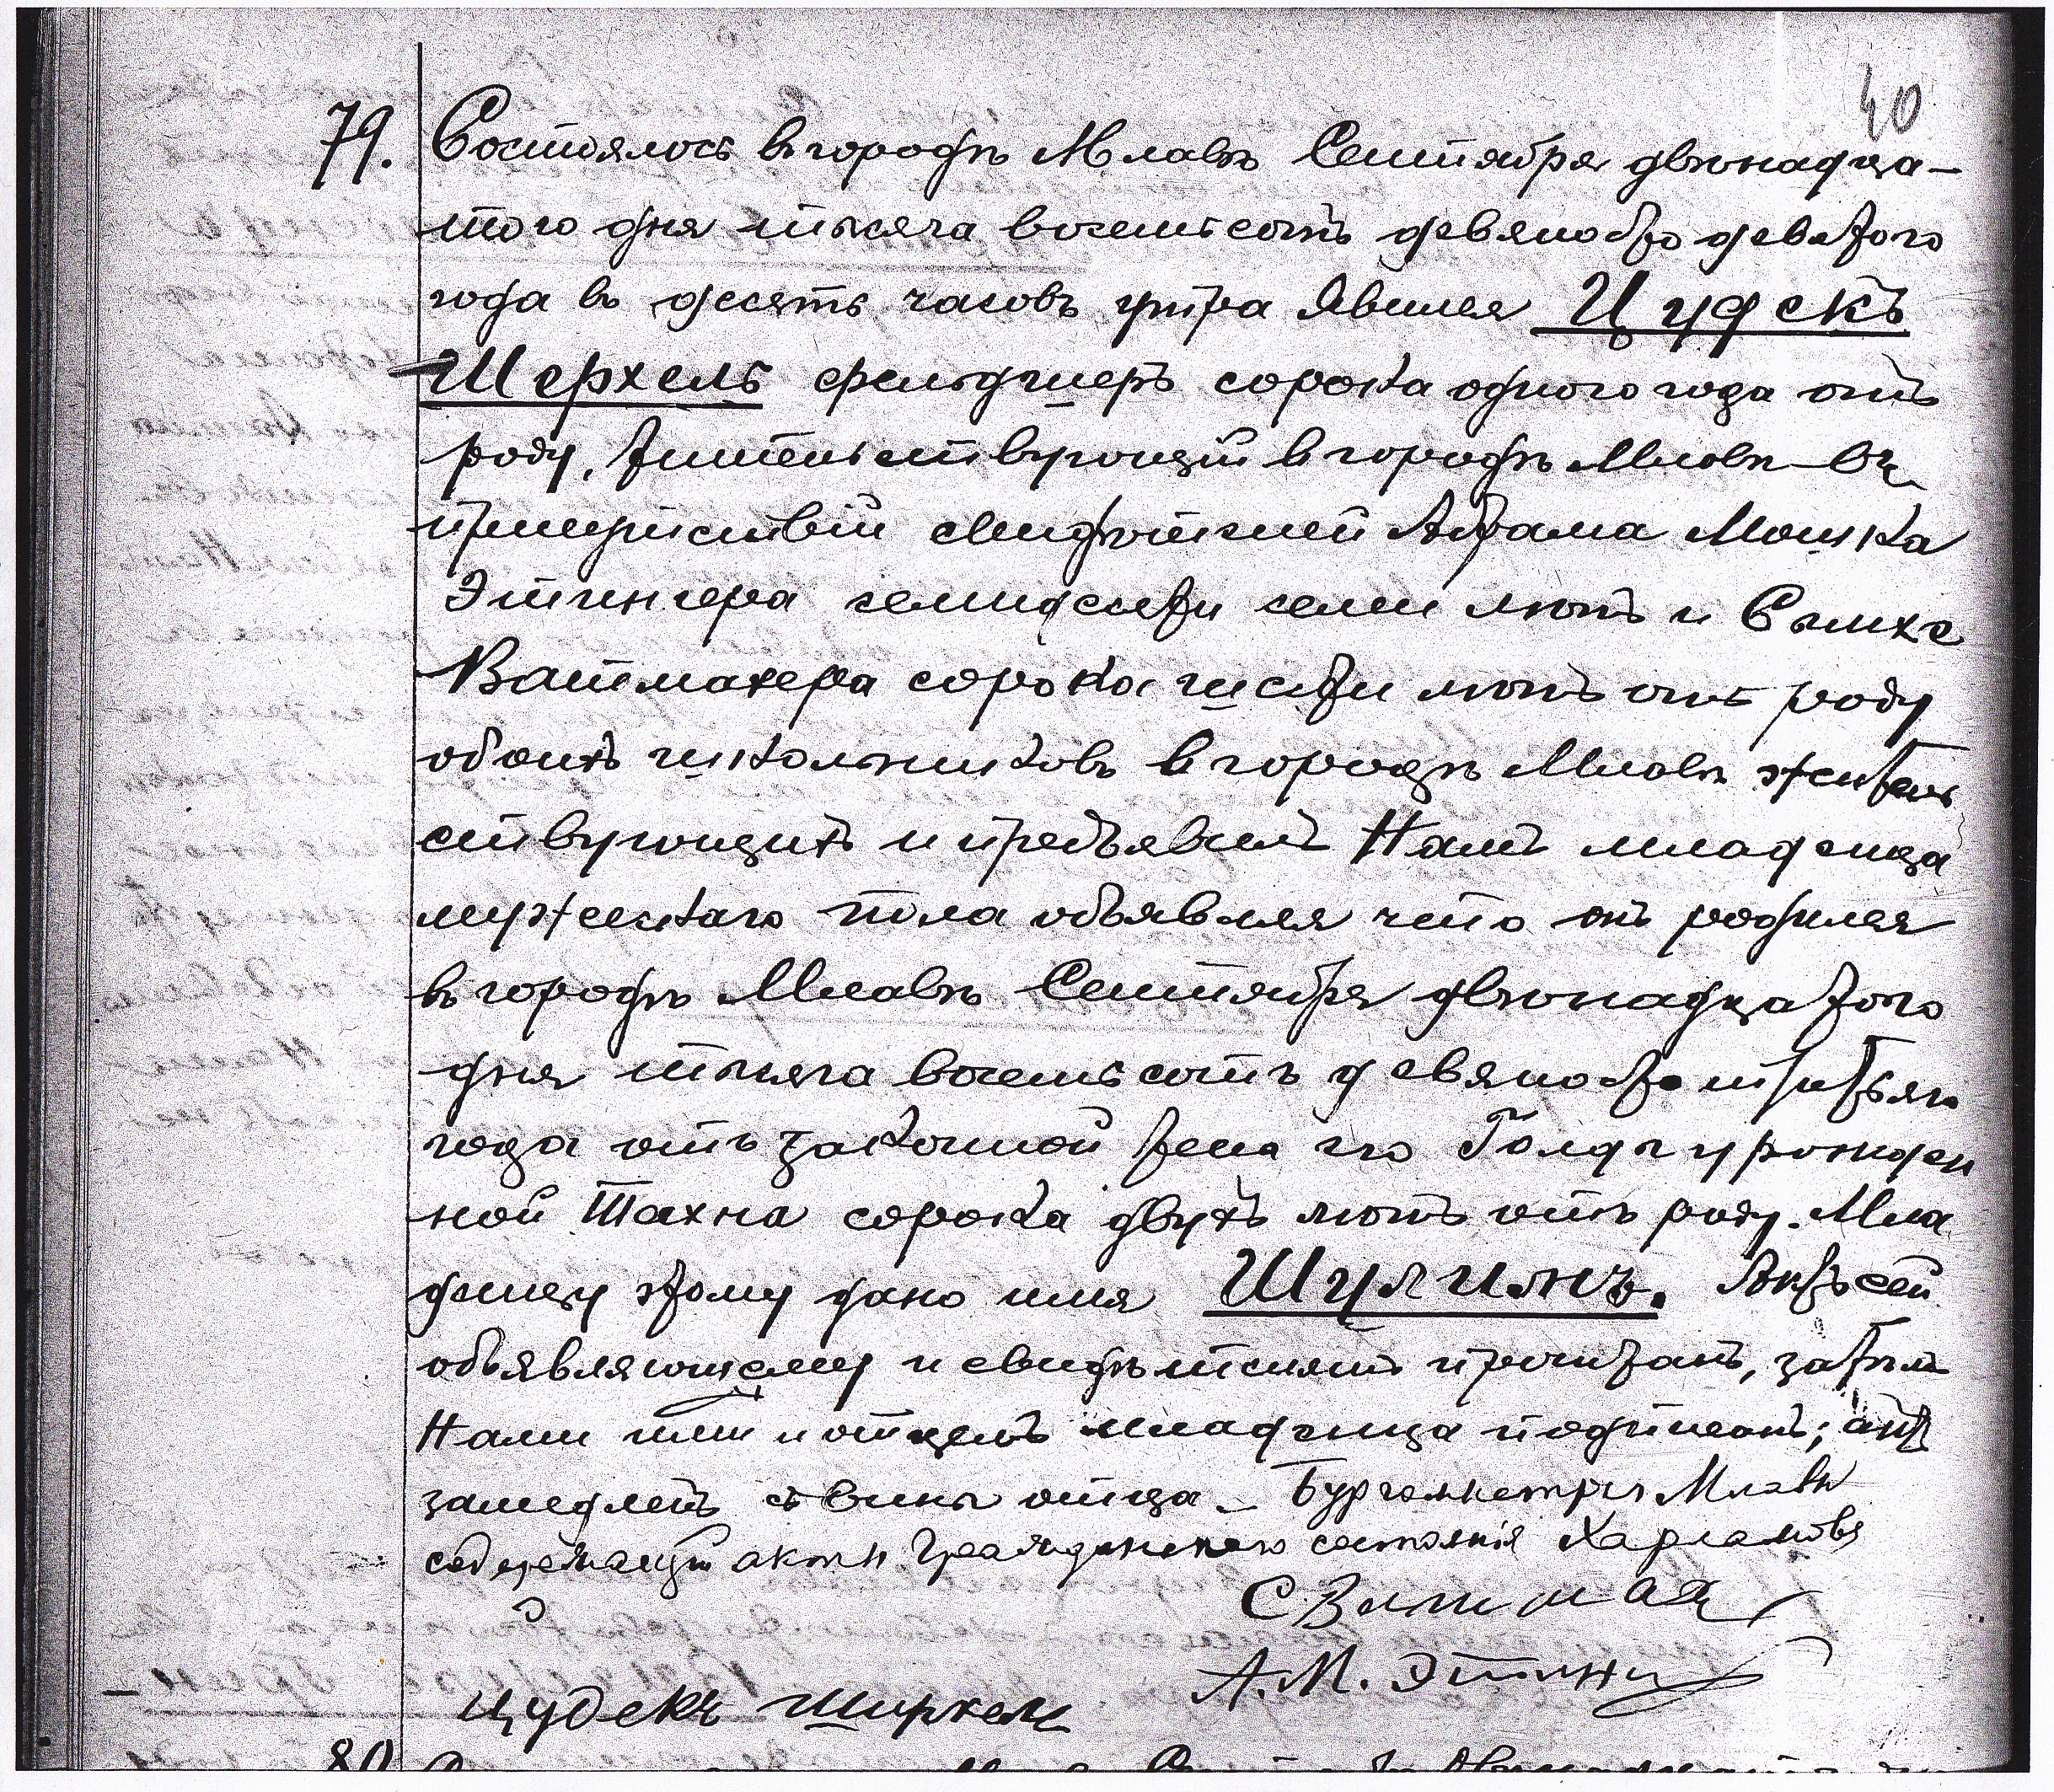 40
79. Состоялось въ городѣ Млавѣ Сентября двѣнадца-
того дня тысяча восемьсотъ девяносто девятого
года въ десять часовъ утра. Явился Цудекъ
Шерхель фельдшеръ сорока одного года отъ
роду, жительствующій въ городѣ Млавѣ въ
присутствіи свидѣтелей Абрама Мошка
Этингера семидесяти семи лѣтъ и Симхе
Ватмахера сорока шести лѣтъ отъ роду
обоихъ школьниковъ въ городѣ Млавѣ житель
ствующихъ и предъявилъ Намъ младенца
мужескаго пола объявляя что онъ родился
въ городѣ Млавѣ Сентября двѣнадцатого
дня тысяча восемьсотъ девяносто третьяго
года отъ законной жены его Голды урожден
ной Тахна сорока двухъ лѣтъ отъ роду. Мла
денцу этому дано имя Шулимъ. Актъ сей
объявляющему и свидѣтелямъ прочитанъ, затѣмъ
Нами ими и отцемъ младенца подписанъ; актъ
замедленъ съ вины отца. Бургомистръ Млавы
содержащій акты Гражданскаго состоянія Харламовъ
С Ватмах
А. М. Этинг
Цудекъ Ширхель
80